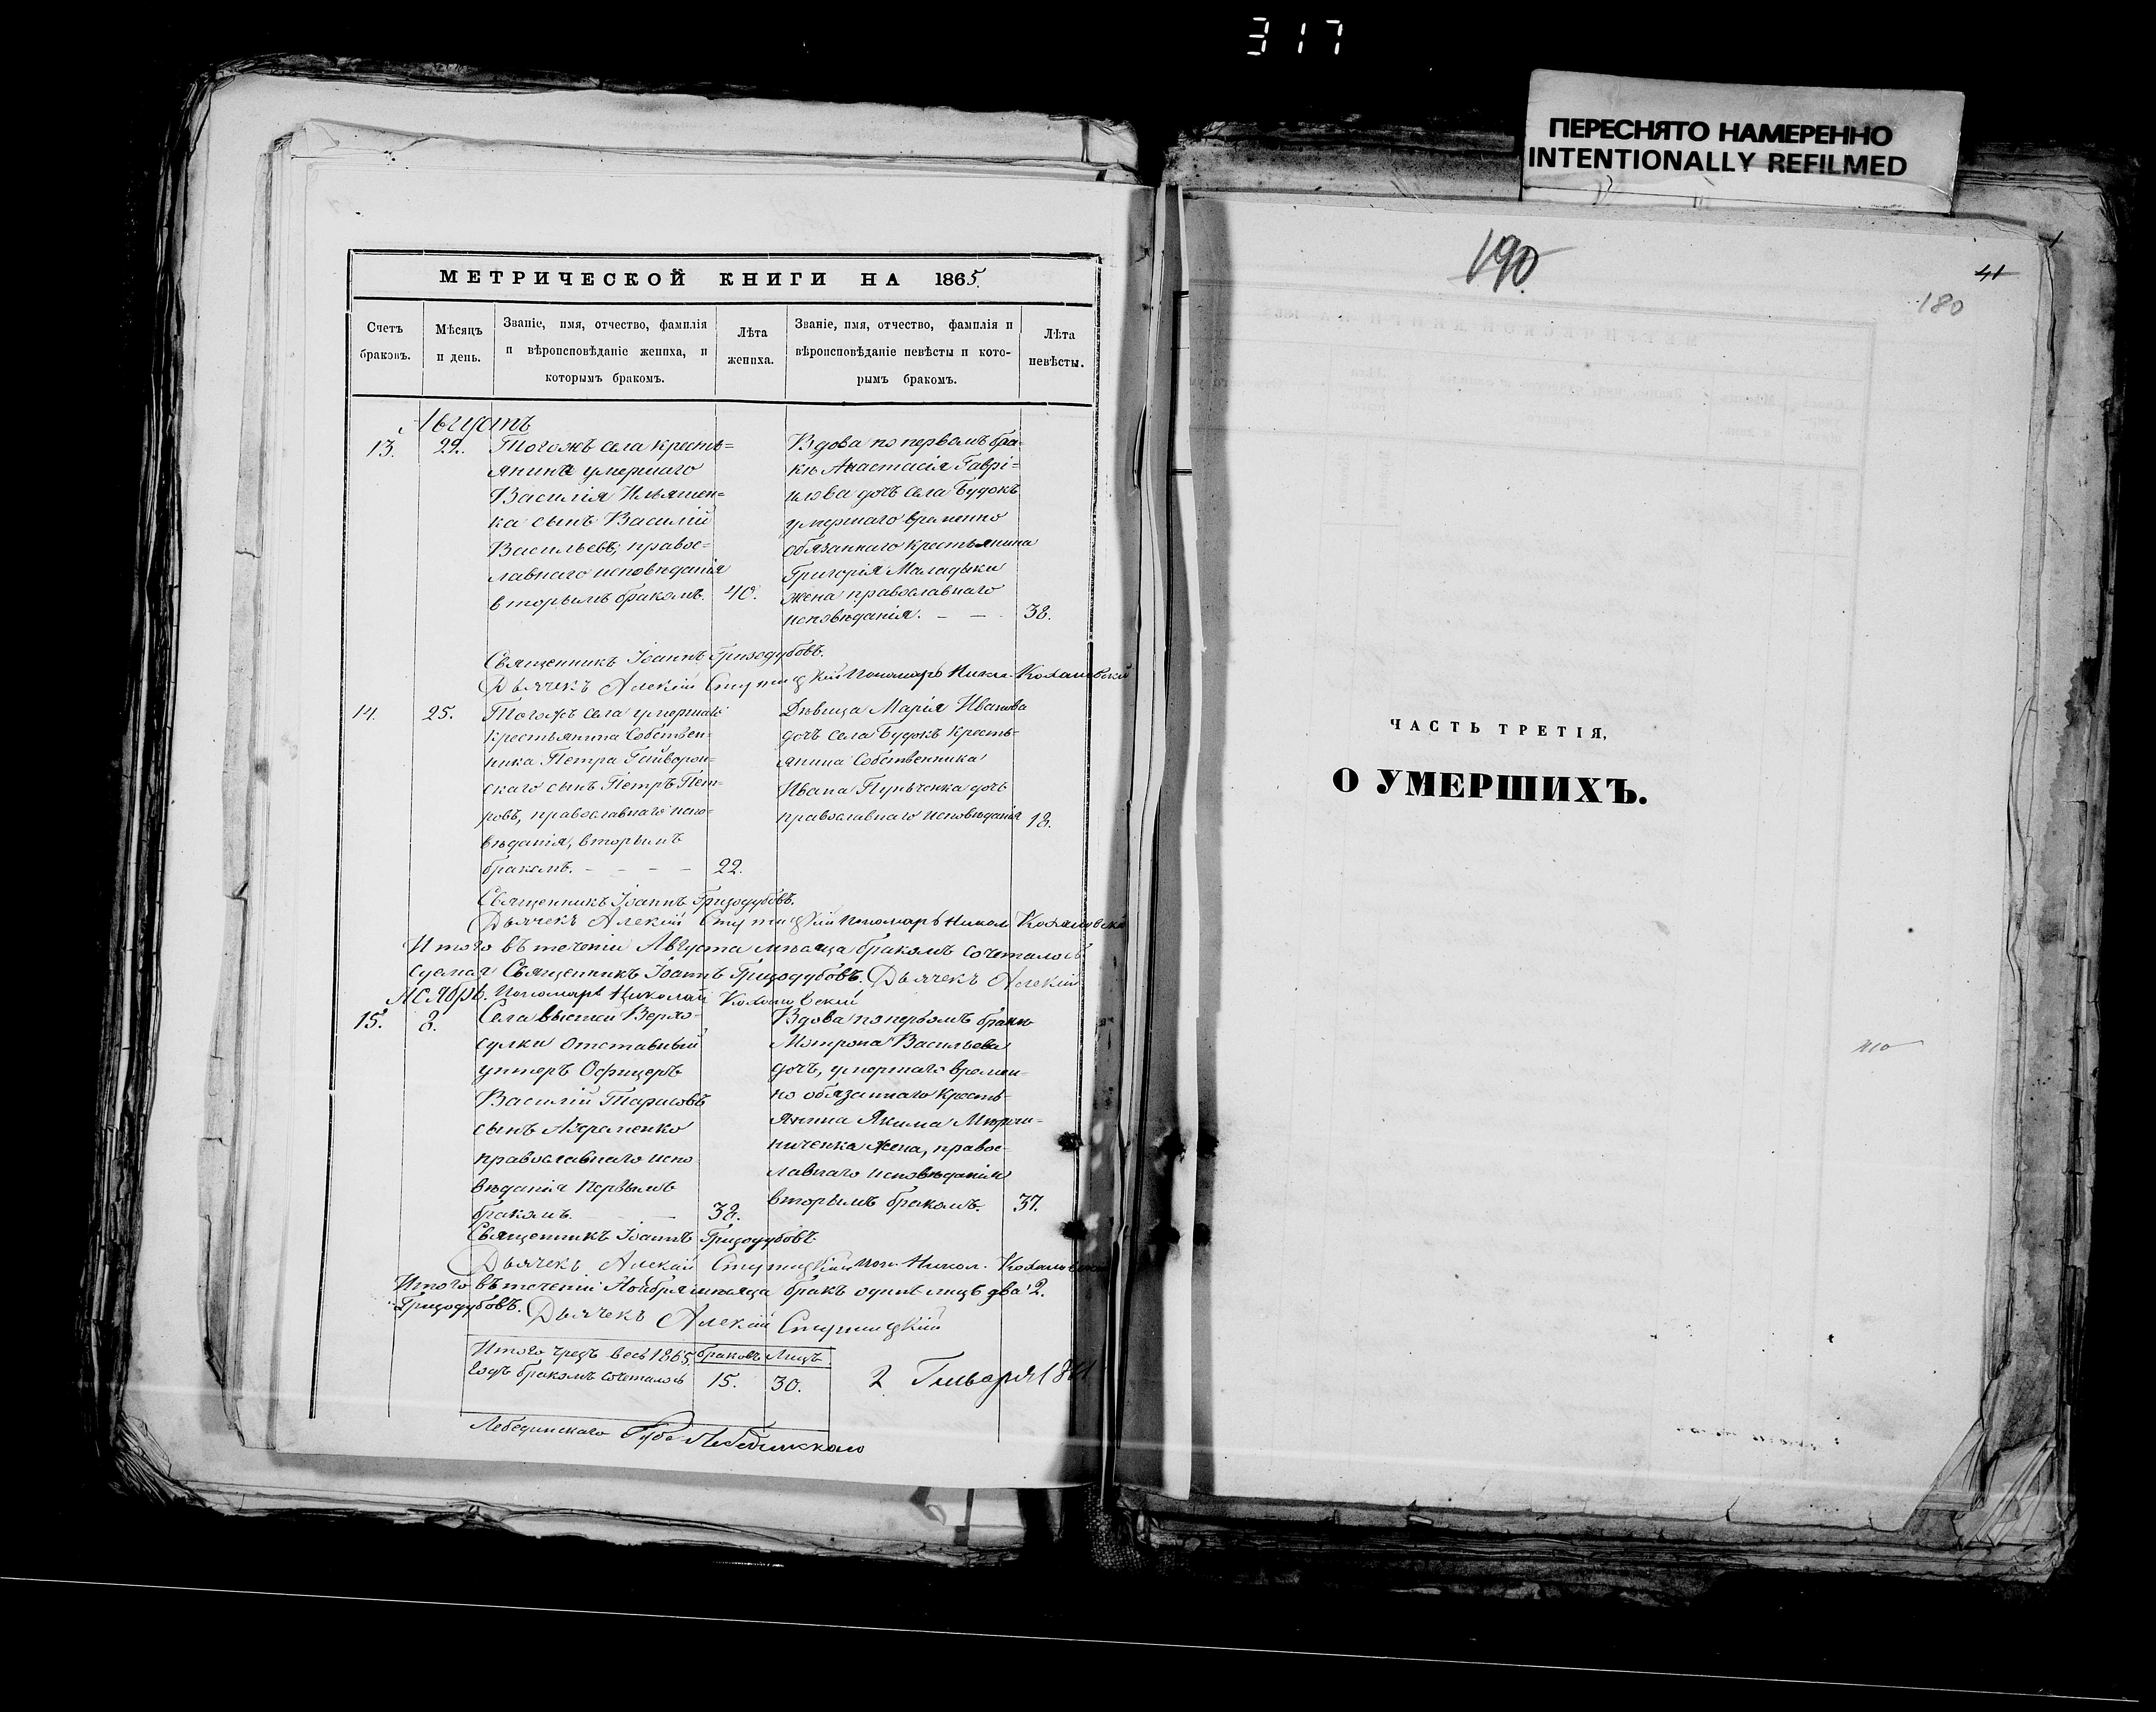 317
ПЕРЕСНЯТО НАМЕРЕННО
INTENTIONALLY REFILMED
МЕТРИЧЕСКОЙ КНИГИ НА 1865.
Счетъ браковъ.
Мѣсяцъ и день.
Званіе, имя, отчество, фамилія
и вѣроисповѣданіе жениха, и
которымъ бракомъ.
Лѣта жениха.
Званіе, имя, отчество, фамилія и
вѣроисповѣданіе невѣсты и кото-
рымъ бракомъ.
Лѣта невѣсты.
Августъ
13. 22. Тогожъ села кресть=
янина умершаго
Василія Ильяшен=
ка сынъ Василій
Васильевъ, правос=
лавнаго исповѣданія
вторымъ бракомъ. 40.
Вдова по первомъ бра-
кѣ Анастасія Гаврі=
илова дочь села Будокъ
умершаго временно
обязаннаго крестьянина
Григорія Маладыки
жена православнаго
исповѣданія. — — 38.
Священникъ Іоаннъ Гризодубовъ.
Дьячекъ Алексій Пономарь
14. 25. Тогожъ села умершаго
крестьянина Собствен-
ника Петра Гайворон=
скаго сынъ Петръ Пет=
ровъ, православнаго испо=
вѣданія, вторымъ
бракомъ. — — — — 22.
Дѣвица Марія Иванова
дочь села Будокъ кресть-
янина Собственника
Ивана дочь
православнаго исповѣданія 18.
Священникъ Іоаннъ Гризодубовъ.
Дьячекъ Алексій Пономарь Никол
Итого въ теченіи Августа мѣсяца бракомъ сочеталось
Священникъ Іоаннъ Гризодубовъ. Дьячекъ Алексій
Пономарь Николай
15. 8. Села Верхо-
сулки Отставный
унтеръ Офицеръ
Василій Тарасовъ
сынъ
православнаго испо
вѣданія первымъ
бракомъ. — — 38.
Вдова по первомъ бракѣ
Мотрона Васильева
дочь, умершаго времен-
но обязаннаго кресть-
янина Якима
жена, правос-
лавнаго исповѣданія
вторымъ бракомъ. 37.
Священникъ Іоаннъ Гризодубовъ.
Дьячекъ Алексій Пон. Никол.
Итого въ теченіи Ноября мѣсяца бракъ одинъ лицъ два 2.
Гризодубовъ. Дьячекъ Алексій
Итого чрезъ весь 1865 браковъ Лицъ
годъ бракомъ сочеталось 15. 30.
2 Генваря
Лебединскаго
190
41
180
ЧАСТЬ ТРЕТІЯ,
О УМЕРШИХЪ.